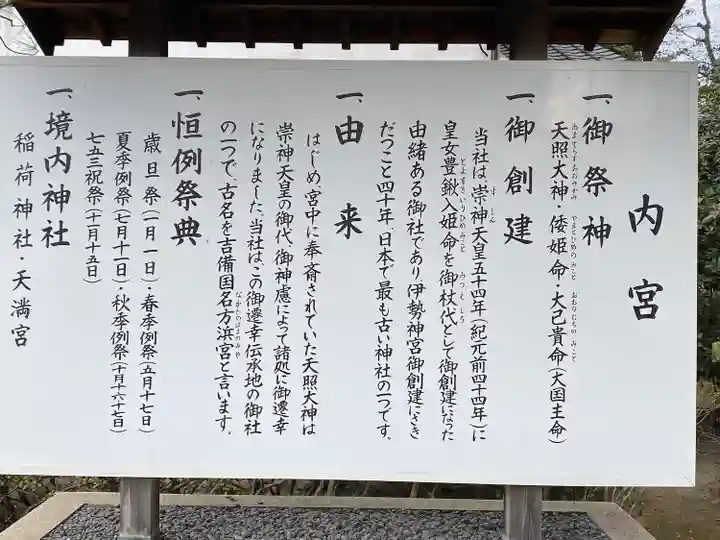 内宮
一、御祭神
天照大神・倭姫命・大己貴命(大国主命)
あまてらすおおみかみ やまとひめのみこと おおなむちのみこと
一、御創建
当社は、崇神天皇五十四年(紀元前四十四年)に
すじん
皇女豊鍬入姫命を御杖代として御創建になった
とよすきいりひめのみこと みつえしろ
由緒ある御社であり伊勢神宮御創建にさき
だつこと四十年、日本で最も古い神社の一つです。
一、由来
はじめ、宮中に奉斎されていた天照大神は
崇神天皇の御代、御神慮によって諸処に御遷幸
になりました、当社は、この御遷幸伝承地の御社
の一つで、古名を吉備国名方浜宮と言います。
なかたのはまのみや
一、恒例祭典
歳旦祭(一月一日)・春季例祭(五月十七日)
夏季例祭(七月十一日)・秋季例祭(十月十六十七日)
七五三祝祭(十一月十五日)
一、境内神社
稲荷神社・天満宮